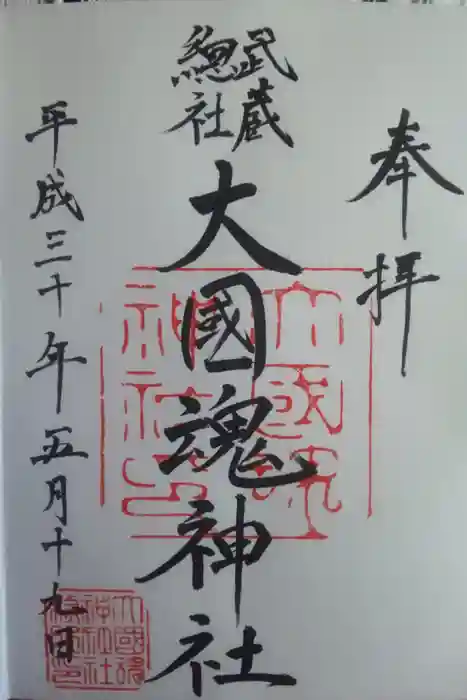 奉拝
武蔵
総社
大國魂神社
平成三十年五月十九日
大國魂
神社之印